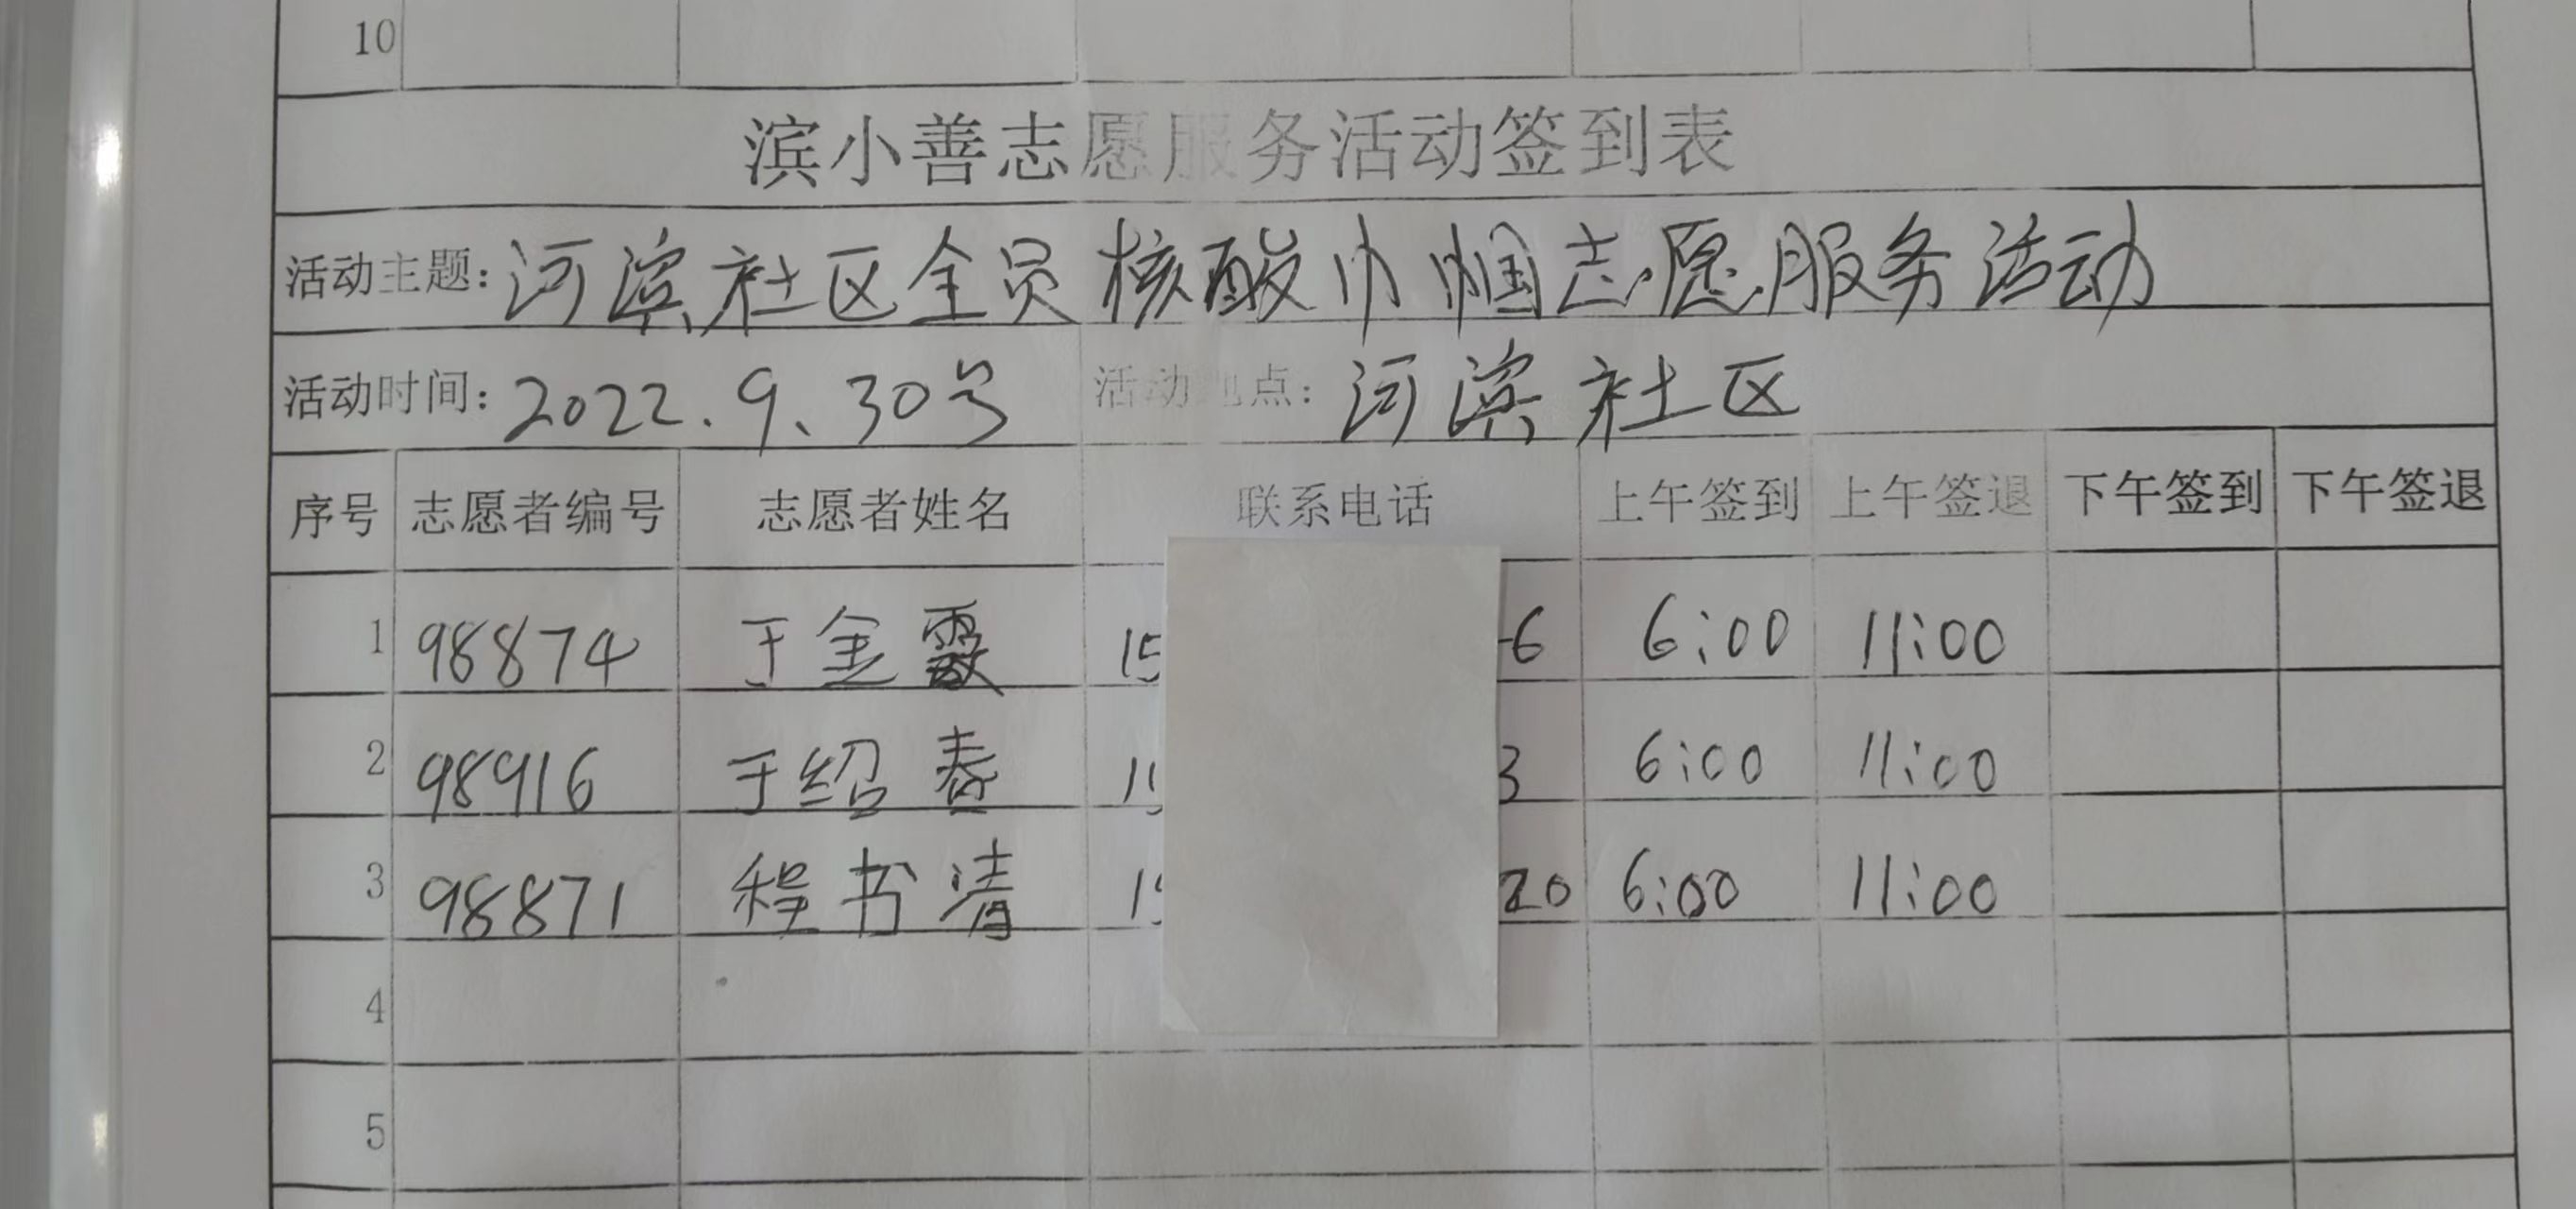 10
滨小善志愿服务活动签到表
活动主题：河滨社区全员核酸巾帼志愿服务活动
活动时间：2022.9、30号 活动地点：河滨社区
序号 志愿者编号 志愿者姓名 联系电话 上午签到 上午签退 下午签到 下午签退
1 98874 于金霞 15 6 6:00 11:00
2 98916 于绍春 3 6:00 11:00
3 98871 程书清 20 6:00 11:00
4
5